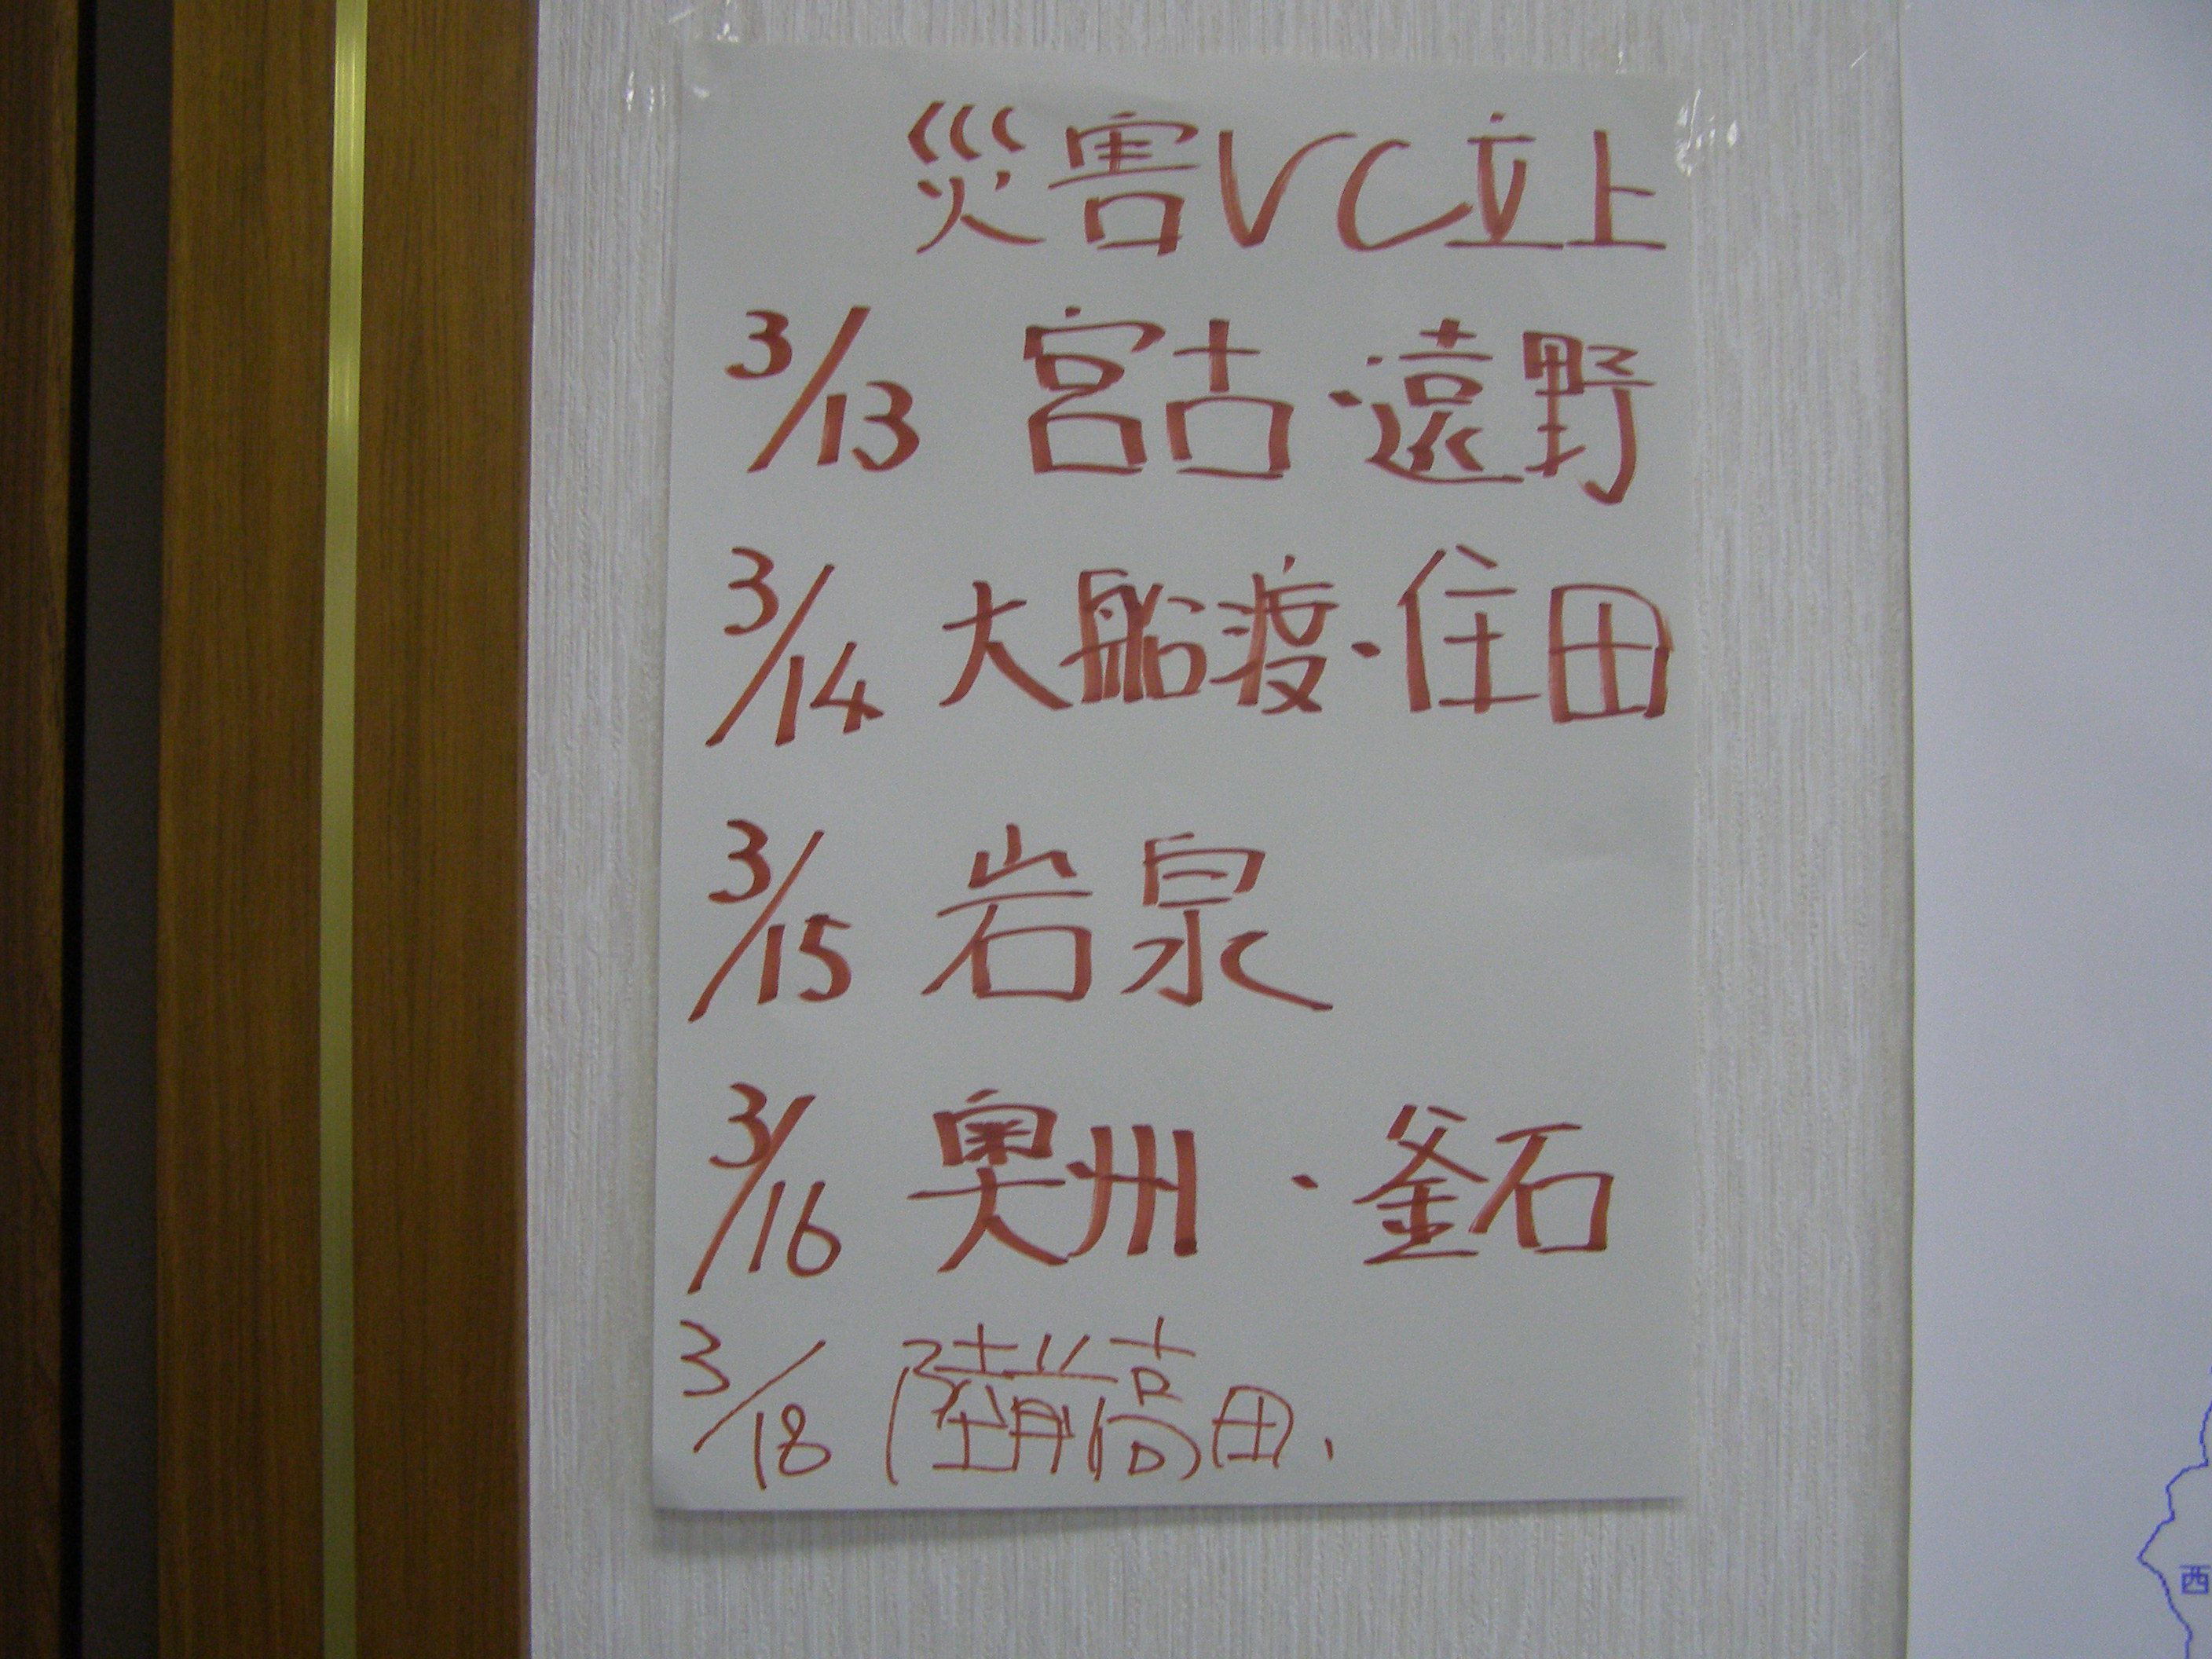 災害VC立上
3/13 宮古・遠野
3/14 大船渡・住田
3/15 岩泉
3/16 奥州・釜石
3/18 陸前高田、
西